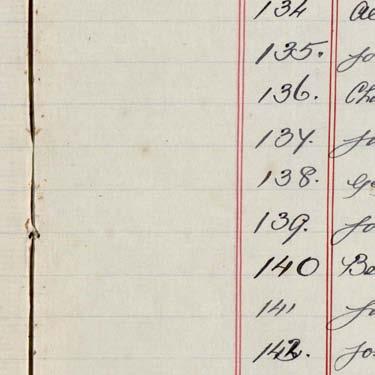 134
135. Jo
136. Cha
137. Jo
138. Ge
139. Jo
140 Be
141 Jo
142. Jos